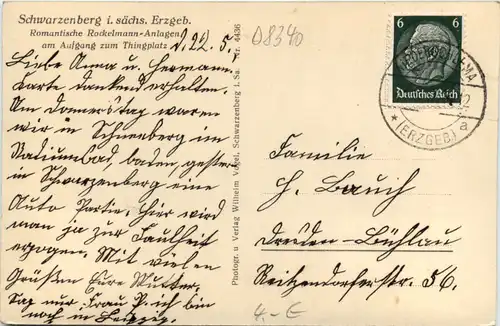 Schwarzenberg i. sächs. Erzgeb.
Romantische Rockelmann-Anlagen,
am Aufgang zum Thingplatz
d. 22. 5.
Liebe Anna u. Hermann
Karte dankend erhalten.
Am Donnerstag waren
wir in Schneeberg im
Radiumbad, baden, gestern
in Schwarzenberg eine
Auto Partie. Hier wird
man ja zur Faulheit
erzogen. Mit vielen
Grüßen Eure Mutter.
Sag nur Frau P. ich bin
noch in Leipzig.
Photogr. u Verlag Wilhelm Vogel, Schwarzenberg i. Sa. Nr. 4436
D8340
6 6
Deutsches Reich
(ERZGEB) a
Familie
H. Bauch
Dresden-Bühlau
Reitzendorferstr. 56.
4.- €